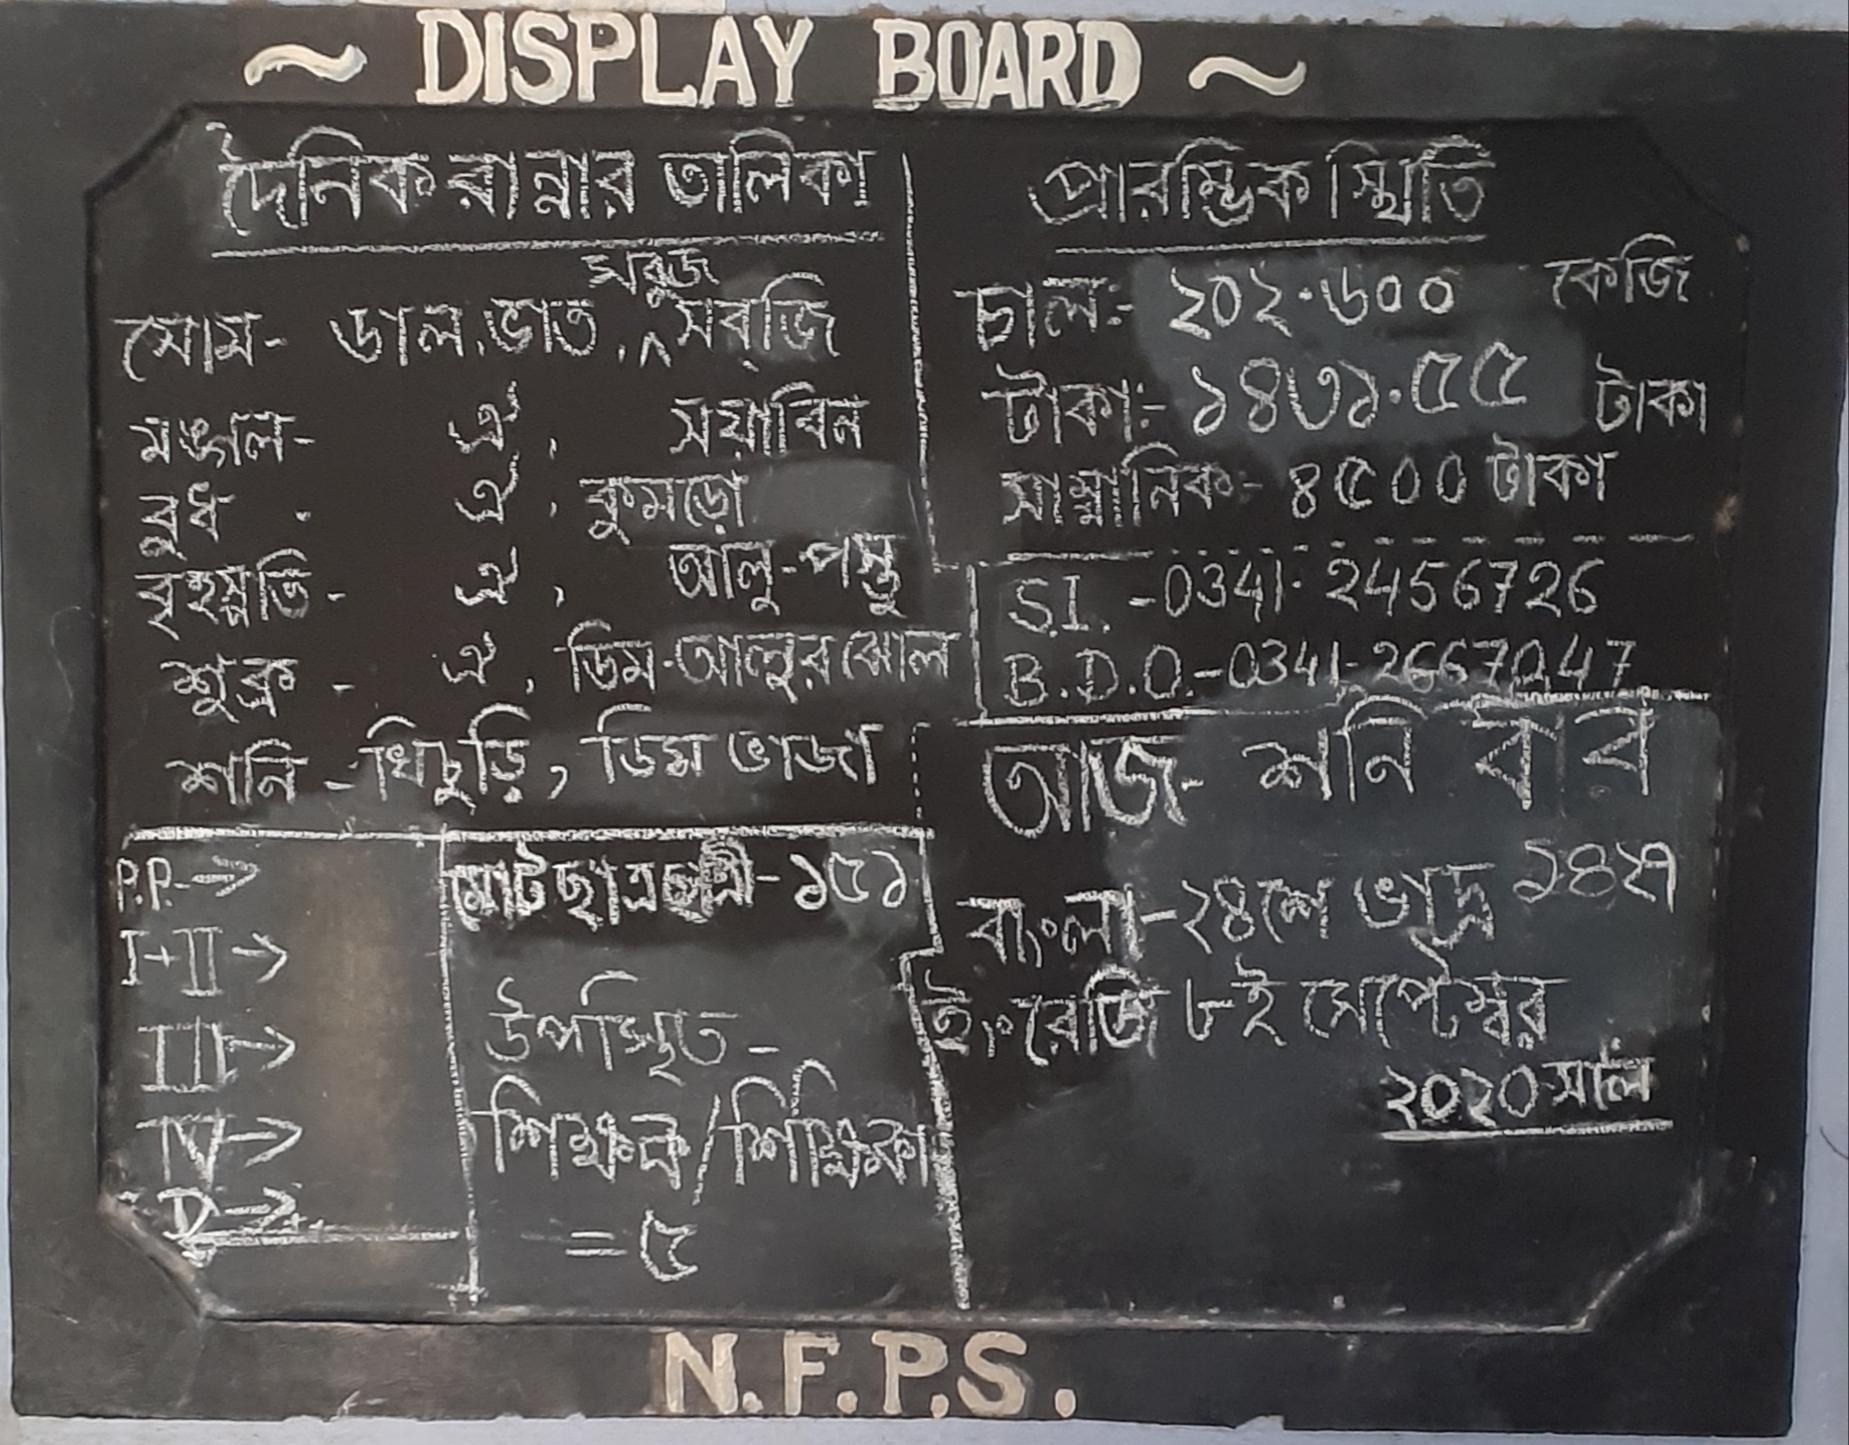 ~ DISPLAY BOARD ~
দৈনিক রান্নার তালিকা
সবুজ
সোম- ডাল, ভাত, ^ সব্জি
মঙ্গল- ঐ, সয়াবিন
বুধ - ঐ, কুমড়ো
বৃহস্পতি- ঐ, আলু-পস্তু
শুক্র - ঐ, ডিম-আলুর ঝোল
শনি - খিচুড়ি, ডিম ভাজা
প্রারম্ভিক স্থিতি
চাল:- ২০২.৬০০ কেজি
টাকা:- ১৪৩১.৫৫ টাকা
সাম্মানিক:- ৪৫০০ টাকা
S.I. -0341-2456726
B.D.O.-0341-2667047
আজ- শনি বার
বাংলা-২৪শে ভাদ্র ১৪২৭
ইংরেজি ৮ই সেপ্টেম্বর
২০২০ সাল
P.P.→
I+II→
III→
IV→
মোট ছাত্রছাত্রী-১৫১
উপস্থিত-
শিক্ষক/শিক্ষিকা
=৫
N.F.P.S.